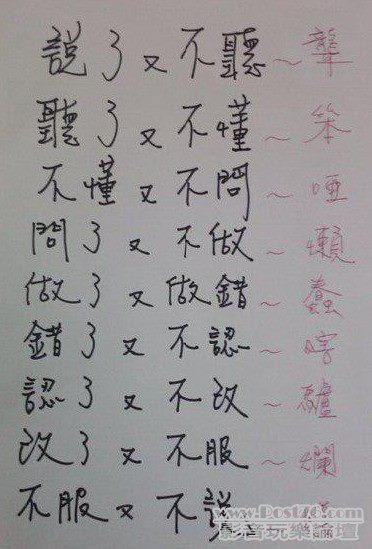 說了又不聽~聾
聽了又不懂~笨
不懂又不問~啞
問了又不做~懶
做了又做錯~蠢
錯了又不認~
認了又不改~驢
改了又不服~爛
不服又不說
影音玩樂論壇